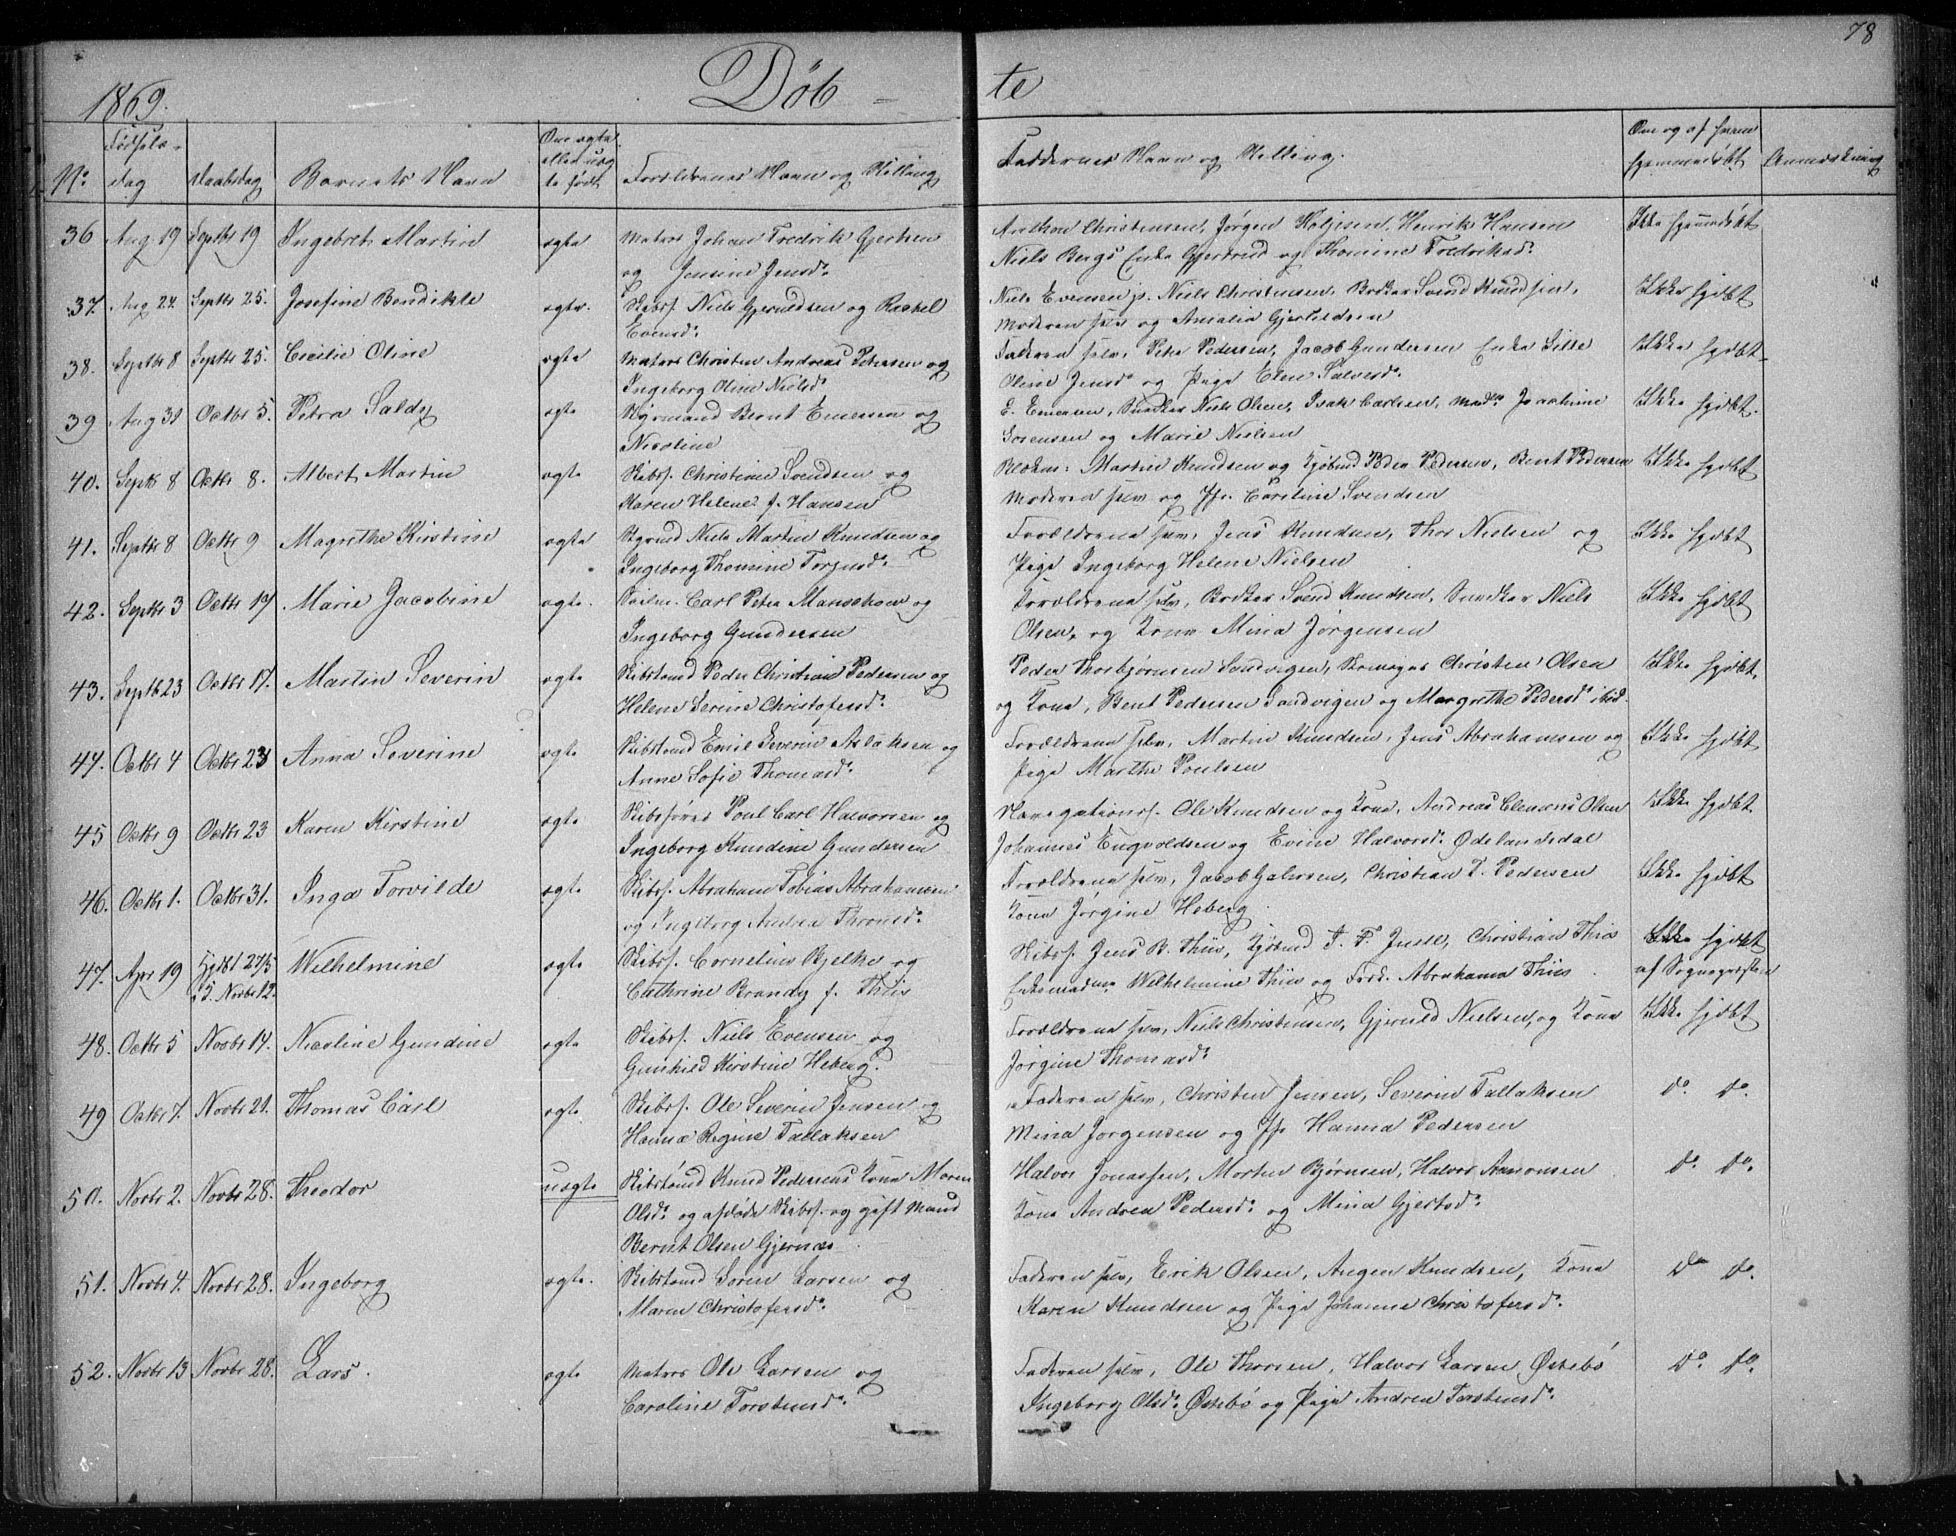 78
1869.
Døbte
No.
Fødselsdag
Daabsdag
Barnets Navn
Om ægte eller uægte født
Forældrenes Navn og Stilling
Faddernes Navn og Stilling.
Om og af hvem hjemmedøbt
Anmærkning
36 Aug 19 Septbr 19 Ingebret Martin ægte Matros Johan Fredrik Gjertsen Anthon Christensen, Jørgen Holjesen, Henrik Hansen Ikke hjemmedøbt
og Jensine Jensd: Niels Bergs Enke Gjertrud og Thomine Fredriksd:
37. Aug 24. Septbr 25. Josefine Bendikte ægte. Skibsf. Niels Gjeruldsen og Rachel Niels Evensen jr. Niels Christensen, Bødker Svend Knudsen, Ikke hjdøbt
Evensd: Moderen selv og Amalia Gjeruldsen
38. Septbr 8 Septbr 25. Cecilie Oline ægte Matros Christen Andreas Petersen og Faderen selv, Peter Pedersen, Jacob Gundersen Enke Sille Ikke hjdøbt
Ingeborg Oline Nielsd: Oline Jensd: og Pige Elen Salvesd:
39 Aug 31 Octbr 5. Petra Saldy ægte Styrmand Bernt Emersen og E. Emersen, Snedker Niels Olsen, Isak Carlsen, Mad: Joachine Ikke hjdøbt.
Nicoline Sørensen og Marie Nielsen
40. Septbr 8 Octbr 8. Albert Martin ægte Skibsf. Christine Svendsen og Blokm: Martin Knudsen og Kjøbmd Peder Pedersen, Bent Pedersen Ikke hjdøbt
Karen Helene f. Hansen Moderen selv og Jfr. Caroline Svendsen
41. Septbr 8 Octbr 9 Magrethe Kirstine ægte Styrmd Niels Martin Knudsen og Forældrene selv, Jens Knudsen, Thor Nielsen og Ikke hjdøbt
Ingeborg Thomine Torjusd: Pige Ingeborg Helene Nielsen
42. Septbr 3 Octbr 17 Marie Jacobine ægte. Seilm. Carl Peter Mansehow og Forældrene selv, Bødker Svend Knudsen, Snedker Niels Ikke hjdøbt
Ingeborg Gundersen Olsen, og Kone Mina Jørgensen
43. Septb 23 Octbr 17. Martin Severin ægte Skibstømd Peder Christian Pedersen og Peder Thorbjørnsen Sandvigen, Skomager Christen Olsen Ikke hjdøbt.
Helene Serine Christofersd: og Kone, Bent Pedersen Sandvigen og Margrethe Pedersd: ibid.
44. Octbr 4 Octbr 23 Anna Severine ægte Skibstømd Emil Severin Aslaksen og Forældrene selv, Martin Knudsen, Jens Abrahamsen og Ikke hjdøbt
Anne Sofie Thomasd: Pige Marthe Poulsen
45 Octbr 9 Octbr 23 Karen Kirstine ægte Skibsfører Poul Carl Halvorsen og Navigationsf. Ole Knudsen og Kone, Andreas Clemens Olsen Ikke hjdøbt
Ingeborg Knudine Gundersen Johannes Engvoldsen og Evine Halvorsd: Ødelandsdal
46. Octbr 1. Octbr 31. Inga Torvilde ægte Skibsf. Abraham Tobias Abrahamsen Forældrene selv, Jacob Jalersen, Christian T. Pedersen Ikke hjdøbt
og Ingeborg Andrea Thronsd: Kone Jørgine Heberg
47. Apr 19 Hjdbt 27/5 i K. Novbr 12. Wilhelmine ægte Skibsf. Cornelius Bjelke og Skibsf. Jens B. Thiis, Kjøbmd T. F. Juell, Christian Thiis Ikke hjdøbt
Cathrine Brandy f. Thiis Enkemadme Wilhelmine Thiis og Frøk. Abrahama Thiis af Sognepresten
48. Octbr 5 Novbr 14. Nicoline Gundine ægte Skibsf. Niels Evensen og Forældrene selv, Niels Christensen, Gjeruld Nielsen, og Kone Ikke hjdøbt
Gunhild Kirstine Heberg. Jørgine Thomasd:
49 Octbr 7. Novbr 21. Thomas Carl ægte Skibsf. Ole Severin Jensen og Faderen selv, Christen Jensen, Severin Tallaksen do. do.
Hanna Regine Tallaksen Mina Jørgensen og Jfr Hanna Pedersen
50. Novbr 2. Novbr 28. Theodor uægte Skibstømd Knud Pedersens Kone Maren Halvor Jonassen, Morten Bjørnsen, Halvor Aanonsen do. do.
Olsd: og afdøde Skibsf. og gift Mand Kone Andrea Pedersd: og Mina Gjertsd:
Bernt Olsen Gjernæs
51. Novbr 4. Novbr 28. Ingeborg ægte. Skibstømd Søren Larsen og Faderen selv, Erik Olsen, Aagen Knudsen, Kone do. do.
Maren Christofersd: Karen Knudsen og Pige Johanne Christofersd:
52. Novbr 13 Novbr 28. Lars. ægte Matros Ole Larsen og Faderen selv, Ole Thorsen, Halvor Larsen Østebø do. do.
Caroline Torstensd: Ingeborg Olsd: Østebø og Pige Andrea Torstensd: